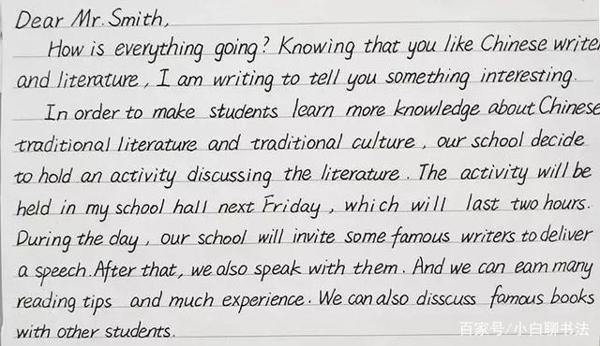 Dear Mr. Smith,
How is everything going? Knowing that you like Chinese write
and literature, I am writing to tell you something interesting.
In order to make students learn more knowledge about Chinese
traditional literature and traditional culture, our school decide
to hold an activity discussing the literature. The activity will be
held in my school hall next Friday, which will last two hours.
During the day, our school will invite some famous writers to deliver
a speech. After that, we also speak with them. And we can earn many
reading tips and much experience. We can also disscuss famous books
with other students.
百家号/小白聊书法